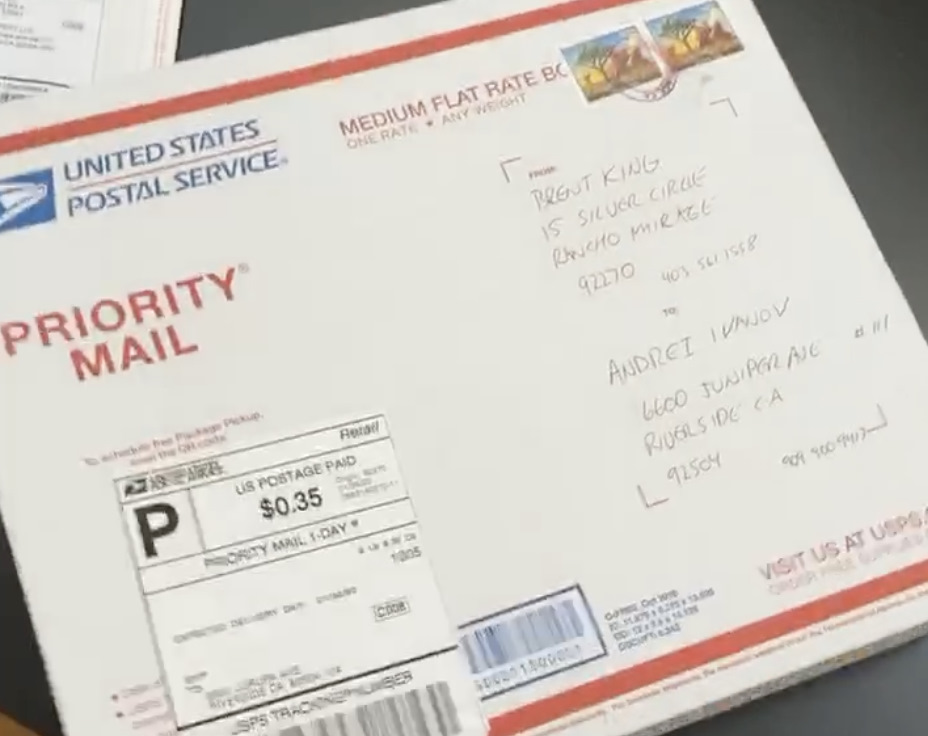 UNITED STATES
POSTAL SERVICE®
MEDIUM FLAT RATE BO
ONE RATE ★ ANY WEIGHT
PRIORITY®
MAIL
FROM:
BRENT KING
15 SILVER CIRCLE
RANCHO MIRAGE
92270 403 561 1558
TO:
ANDREI IVANOV
6600 JUNIPER AVE # 111
RIVERSIDE CA
92504
To schedule free Package Pickup,
scan the QR code.
Retail
P
US POSTAGE PAID
$0.35
PRIORITY MAIL 1-DAY ®
1005
EXPECTED DELIVERY DAY:
C008
RIVERSIDE CA
USPS TRACKING NUMBER
VISIT US AT USPS
ORDER FREE SUPPLIES